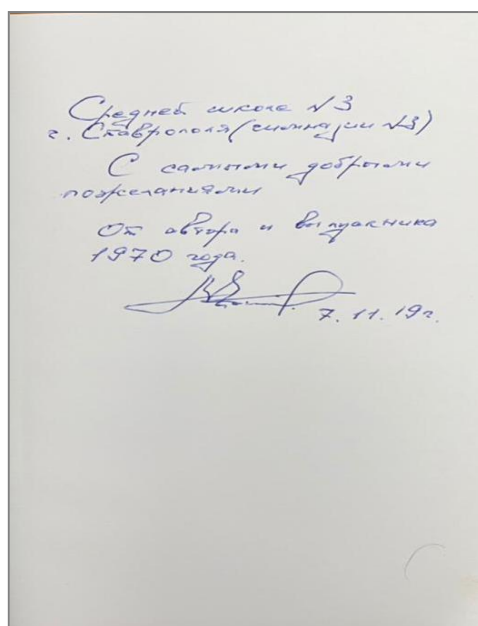 Средней школе №3
г. Ставрополя (гимназии №3)
С самыми добрыми
пожеланиями
От автора и выпускника
1970 года.
7.11.19г.